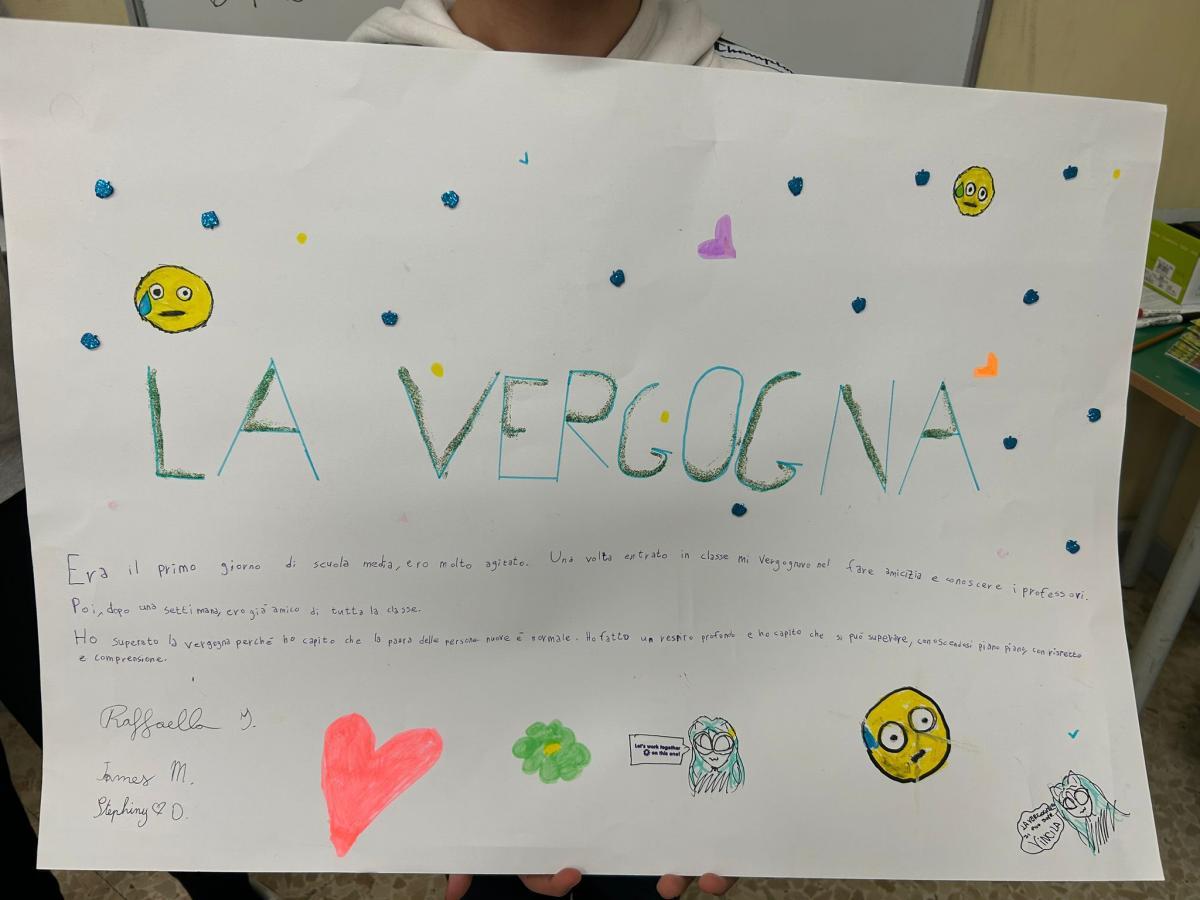 Champion
LA VERGOGNA
Era il primo giorno di scuola media, ero molto agitato. Una volta entrato in classe mi vergognavo nel fare amicizia e conoscere i professori.
Poi, dopo una settimana, ero già amico di tutta la classe.
Ho superato la vergogna perché ho capito che la paura delle persone nuove è normale. Ho fatto un respiro profondo e ho capito che si può superare, conoscendosi piano piano, con rispetto
e comprensione.
Raffaella Y.
James M.
Stephiny D.
Let's work together
on this one!
LA VERGOGNA
SI PUÒ
VINCILA